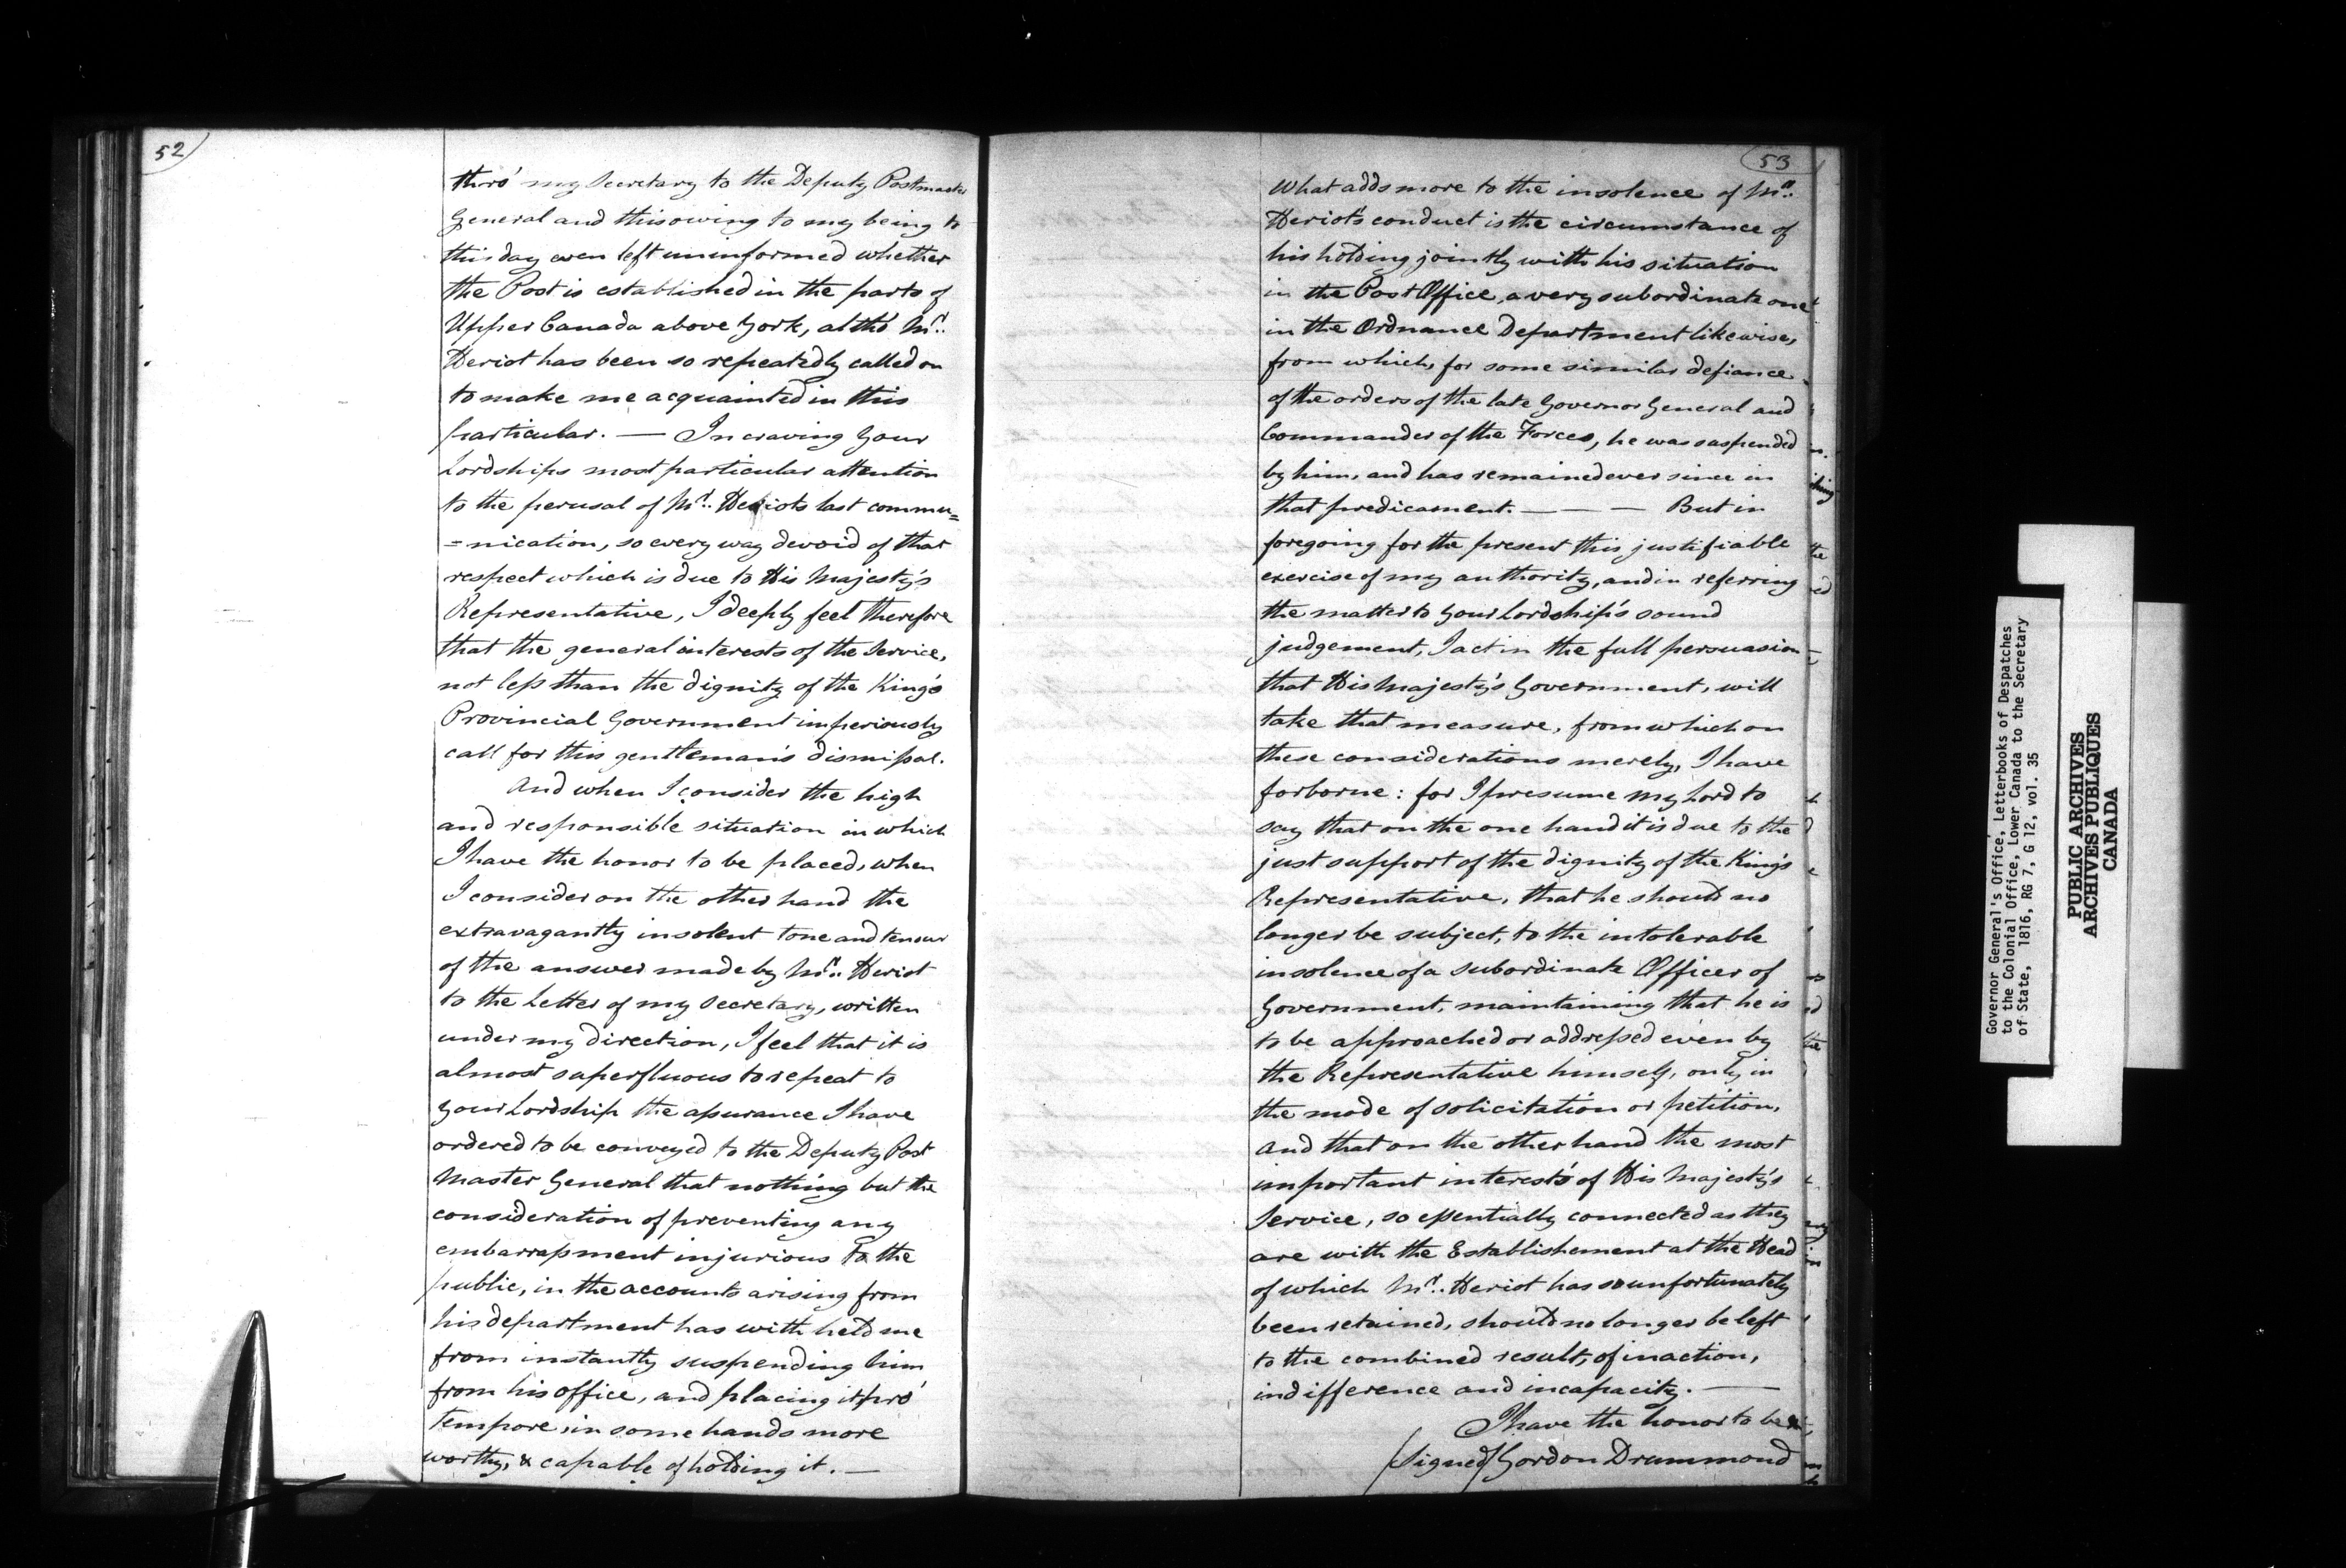 52
thro' my Secretary to the Deputy Postmaster
General and this owing to my being to
this day even left uninformed whether
the Post is established in the parts of
Upper Canada above York, altho' Mr.
Heriot has been so repeatedly called on
to make me acquainted in this
particular. — In craving Your
Lordships most particular attention
to the perusal of Mr. Heriots last commu=
=nication, so every way devoid of that
respect which is due to His Majesty's
Representative, I deeply feel therefore
that the general interests of the Service,
not less than the dignity of the King's
Provincial Government imperiously
call for this gentleman's dismissal.
And when I consider the high
and responsible situation in which
I have the honor to be placed, when
I consider on the other hand the
extravagantly insolent tone and tenour
of the answer made by Mr. Heriot
to the Letter of my Secretary, written
under my direction, I feel that it is
almost superfluous to repeat to
Your Lordship the assurance I have
ordered to be conveyed to the Deputy Post
Master General that nothing but the
consideration of preventing any
embarrassment injurious to the
public, in the accounts arising from
his department has with held me
from instantly suspending him
from his office, and placing it pro'
tempore, in some hands more
worthy, & capable of holding it. —
53
What adds more to the insolence of Mr.
Heriot's conduct is the circumstance of
his holding jointly with his situation
in the Post Office, a very subordinate one
in the Ordnance Department likewise,
from which, for some similar defiance
of the orders of the late Governor General and
Commander of the Forces, he was suspended
by him, and has remained ever since in
that predicament. — — — But in
foregoing for the present this justifiable
exercise of my authority, and in referring
the matter to Your Lordship's sound
judgement, I act in the full persuasion
that His Majesty's Government, will
take that measure, from which on
these considerations merely, I have
forborne: for I presume My Lord to
say that on the one hand it is due to the
just support of the dignity of the King's
Representative, that he should no
longer be subject, to the intolerable
insolence of a subordinate Officer of
Government, maintaining that he is
to be approached or addressed even by
the Representative himself, only in
the mode of solicitation or petition,
and that on the other hand the most
important interests of His Majesty's
Service, so essentially connected as they
are with the Establishement at the Head
of which Mr. Heriot has so unfortunately
been retained, should no longer be left
to the combined result, of inaction,
indifference and incapacity. —
I have the honor to be &c
(Signed) Gordon Drummond
Governor General's Office, Letterbooks of Despatches
to the Colonial Office, Lower Canada to the Secretary
of State, 1816, RG 7, G 12, vol. 35
PUBLIC ARCHIVES
ARCHIVES PUBLIQUES
CANADA